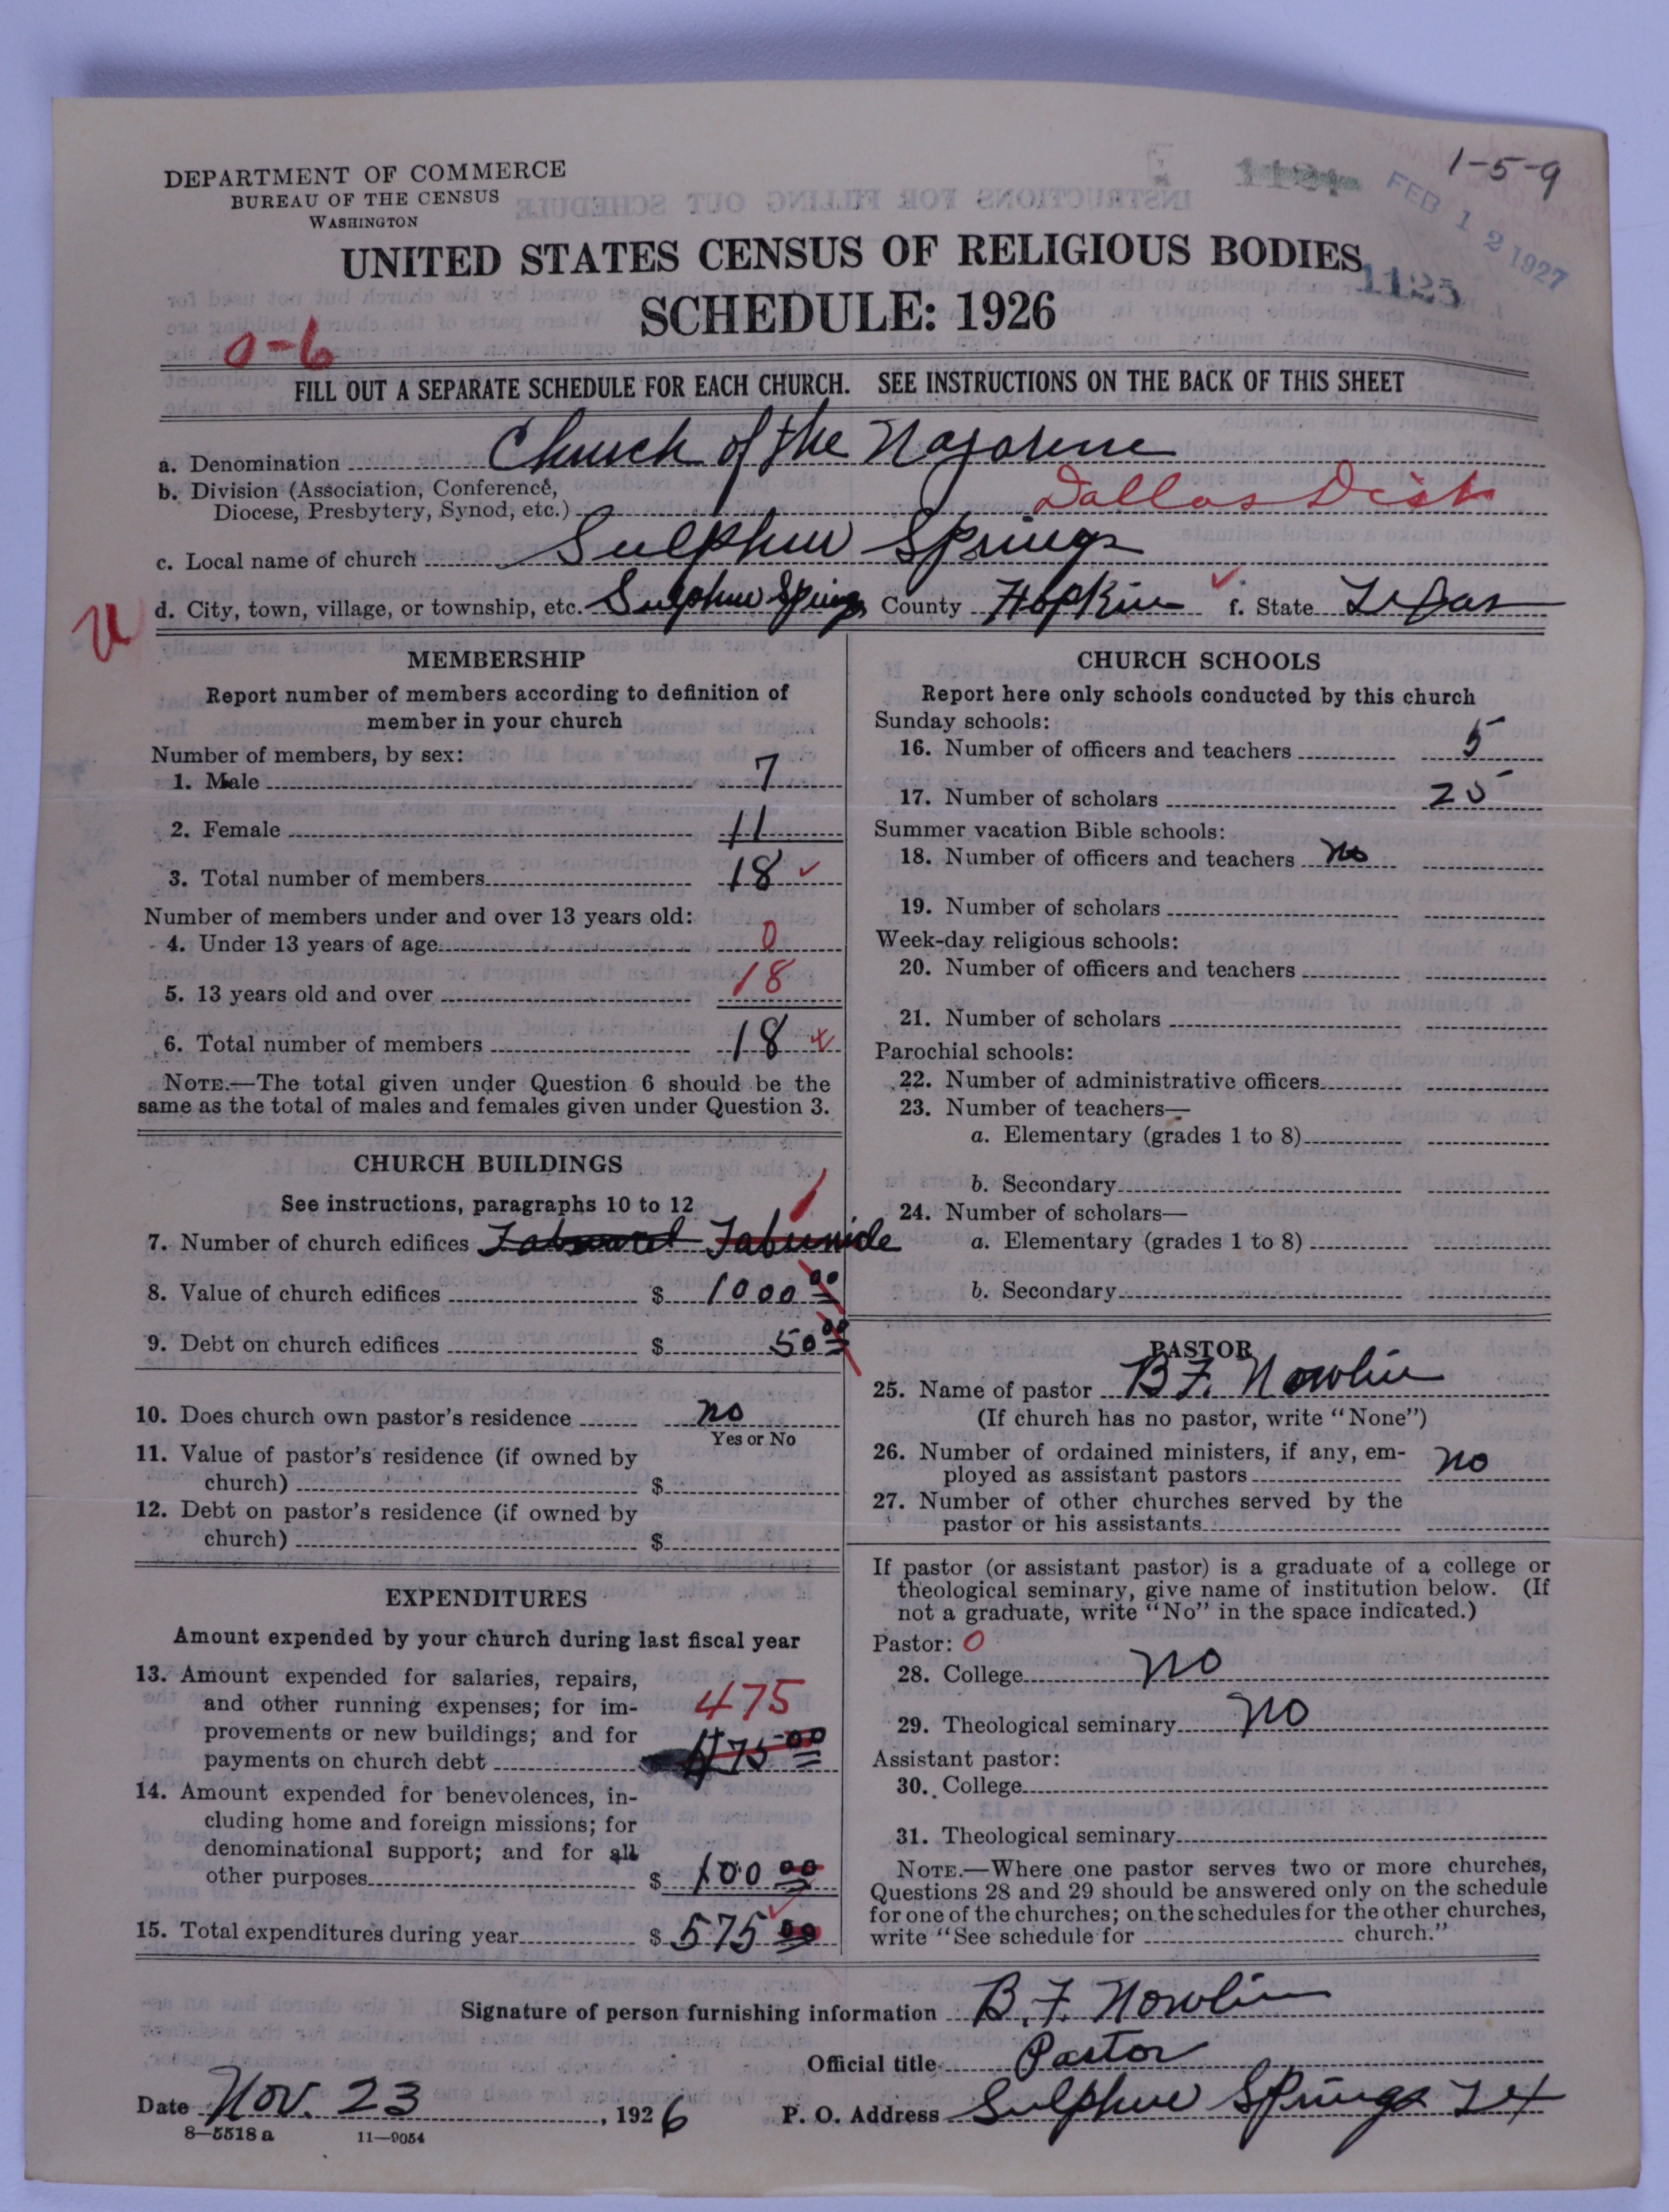 1-5-9
FEB 12 1927
1125
DEPARTMENT OF COMMERCE
BUREAU OF THE CENSUS
WASHINGTON
UNITED STATES CENSUS OF RELIGIOUS BODIES
SCHEDULE: 1926
0-6
FILL OUT A SEPARATE SCHEDULE FOR EACH CHURCH. SEE INSTRUCTIONS ON THE BACK OF THIS SHEET
a. Denomination Church of the Nazarene
b. Division (Association, Conference,
Diocese, Presbytery, Synod, etc.) Dallas Dist
c. Local name of church Sulphur Springs
d. City, town, village, or township, etc. Sulphur Springs County Hopkins f. State Texas
MEMBERSHIP
Report number of members according to definition of
member in your church
Number of members, by sex:
1. Male 7
2. Female 11
3. Total number of members 18
Number of members under and over 13 years old:
4. Under 13 years of age 0
5. 13 years old and over 18
6. Total number of members 18
NOTE.—The total given under Question 6 should be the
same as the total of males and females given under Question 3.
CHURCH BUILDINGS
See instructions, paragraphs 10 to 12
7. Number of church edifices 1
8. Value of church edifices $ 1000 00
9. Debt on church edifices $ 50 00
10. Does church own pastor's residence no
Yes or No
11. Value of pastor's residence (if owned by
church) $
12. Debt on pastor's residence (if owned by
church) $
EXPENDITURES
Amount expended by your church during last fiscal year
13. Amount expended for salaries, repairs,
and other running expenses; for im-
provements or new buildings; and for
payments on church debt 475
475 00
14. Amount expended for benevolences, in-
cluding home and foreign missions; for
denominational support; and for all
other purposes $ 100 00
15. Total expenditures during year $ 575 00
CHURCH SCHOOLS
Report here only schools conducted by this church
Sunday schools:
16. Number of officers and teachers 5
17. Number of scholars 25
Summer vacation Bible schools:
18. Number of officers and teachers no
19. Number of scholars
Week-day religious schools:
20. Number of officers and teachers
21. Number of scholars
Parochial schools:
22. Number of administrative officers
23. Number of teachers—
a. Elementary (grades 1 to 8)
b. Secondary
24. Number of scholars—
a. Elementary (grades 1 to 8)
b. Secondary
PASTOR
25. Name of pastor B. F. Nowlin
(If church has no pastor, write "None")
26. Number of ordained ministers, if any, em-
ployed as assistant pastors no
27. Number of other churches served by the
pastor or his assistants
If pastor (or assistant pastor) is a graduate of a college or
theological seminary, give name of institution below. (If
not a graduate, write "No" in the space indicated.)
Pastor: 0
28. College no
29. Theological seminary no
Assistant pastor:
30. College
31. Theological seminary
NOTE.—Where one pastor serves two or more churches,
Questions 28 and 29 should be answered only on the schedule
for one of the churches; on the schedules for the other churches,
write "See schedule for church."
Signature of person furnishing information B. F. Nowlin
Official title Pastor
Date Nov. 23, 1926 P. O. Address Sulphur Springs Tex
8—5518 a 11—9054